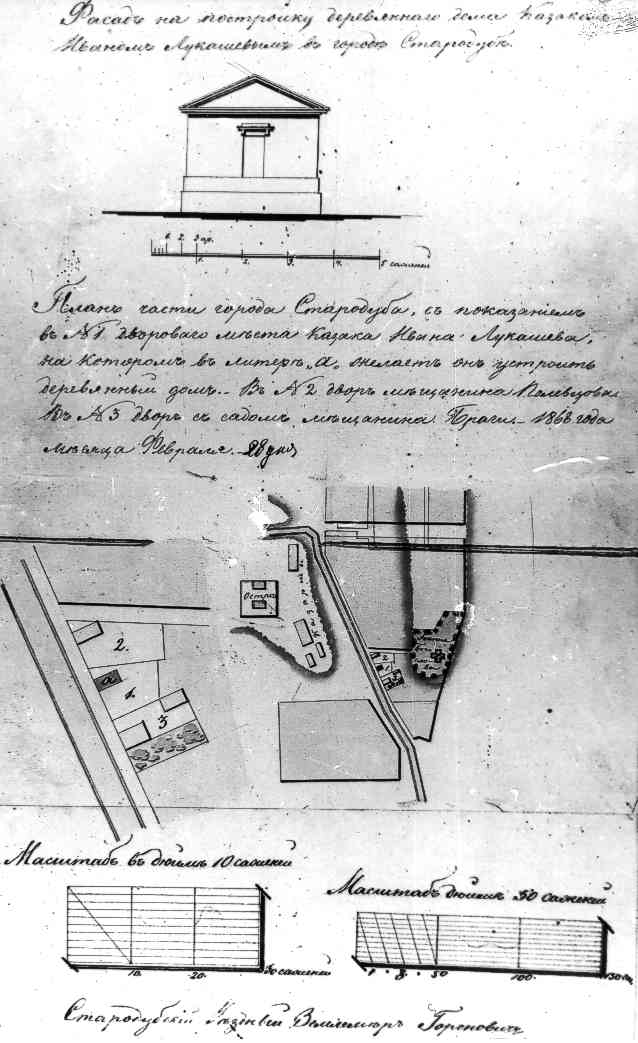 Фасадъ на постройку деревяннаго дома Казакомъ
Иваномъ Лукашевымъ въ городѣ Стародубѣ.
6. 2. 3 ар.
1. 2. 3. 4. 5 саженей
Планъ части города Стародуба, съ показаніемъ
въ №1 двороваго мѣста Казака Ивана Лукашева,
на которомъ въ литерѣ „а„ желаетъ онъ устроить
деревянный домъ.- Въ №2 дворъ мѣщанина
Въ №3 дворъ съ садомъ мѣщанина 1868 года
мѣсяца Февраля. 28 дня
Острогъ
2.
а
1.
3
2
1
3
Масштабъ въ дюймѣ 10 саженей
Масштабъ дюймѣ 50 саженей
10. 20. 30 саженей
50 100. 150
Стародубскій Уѣздный Землемѣръ